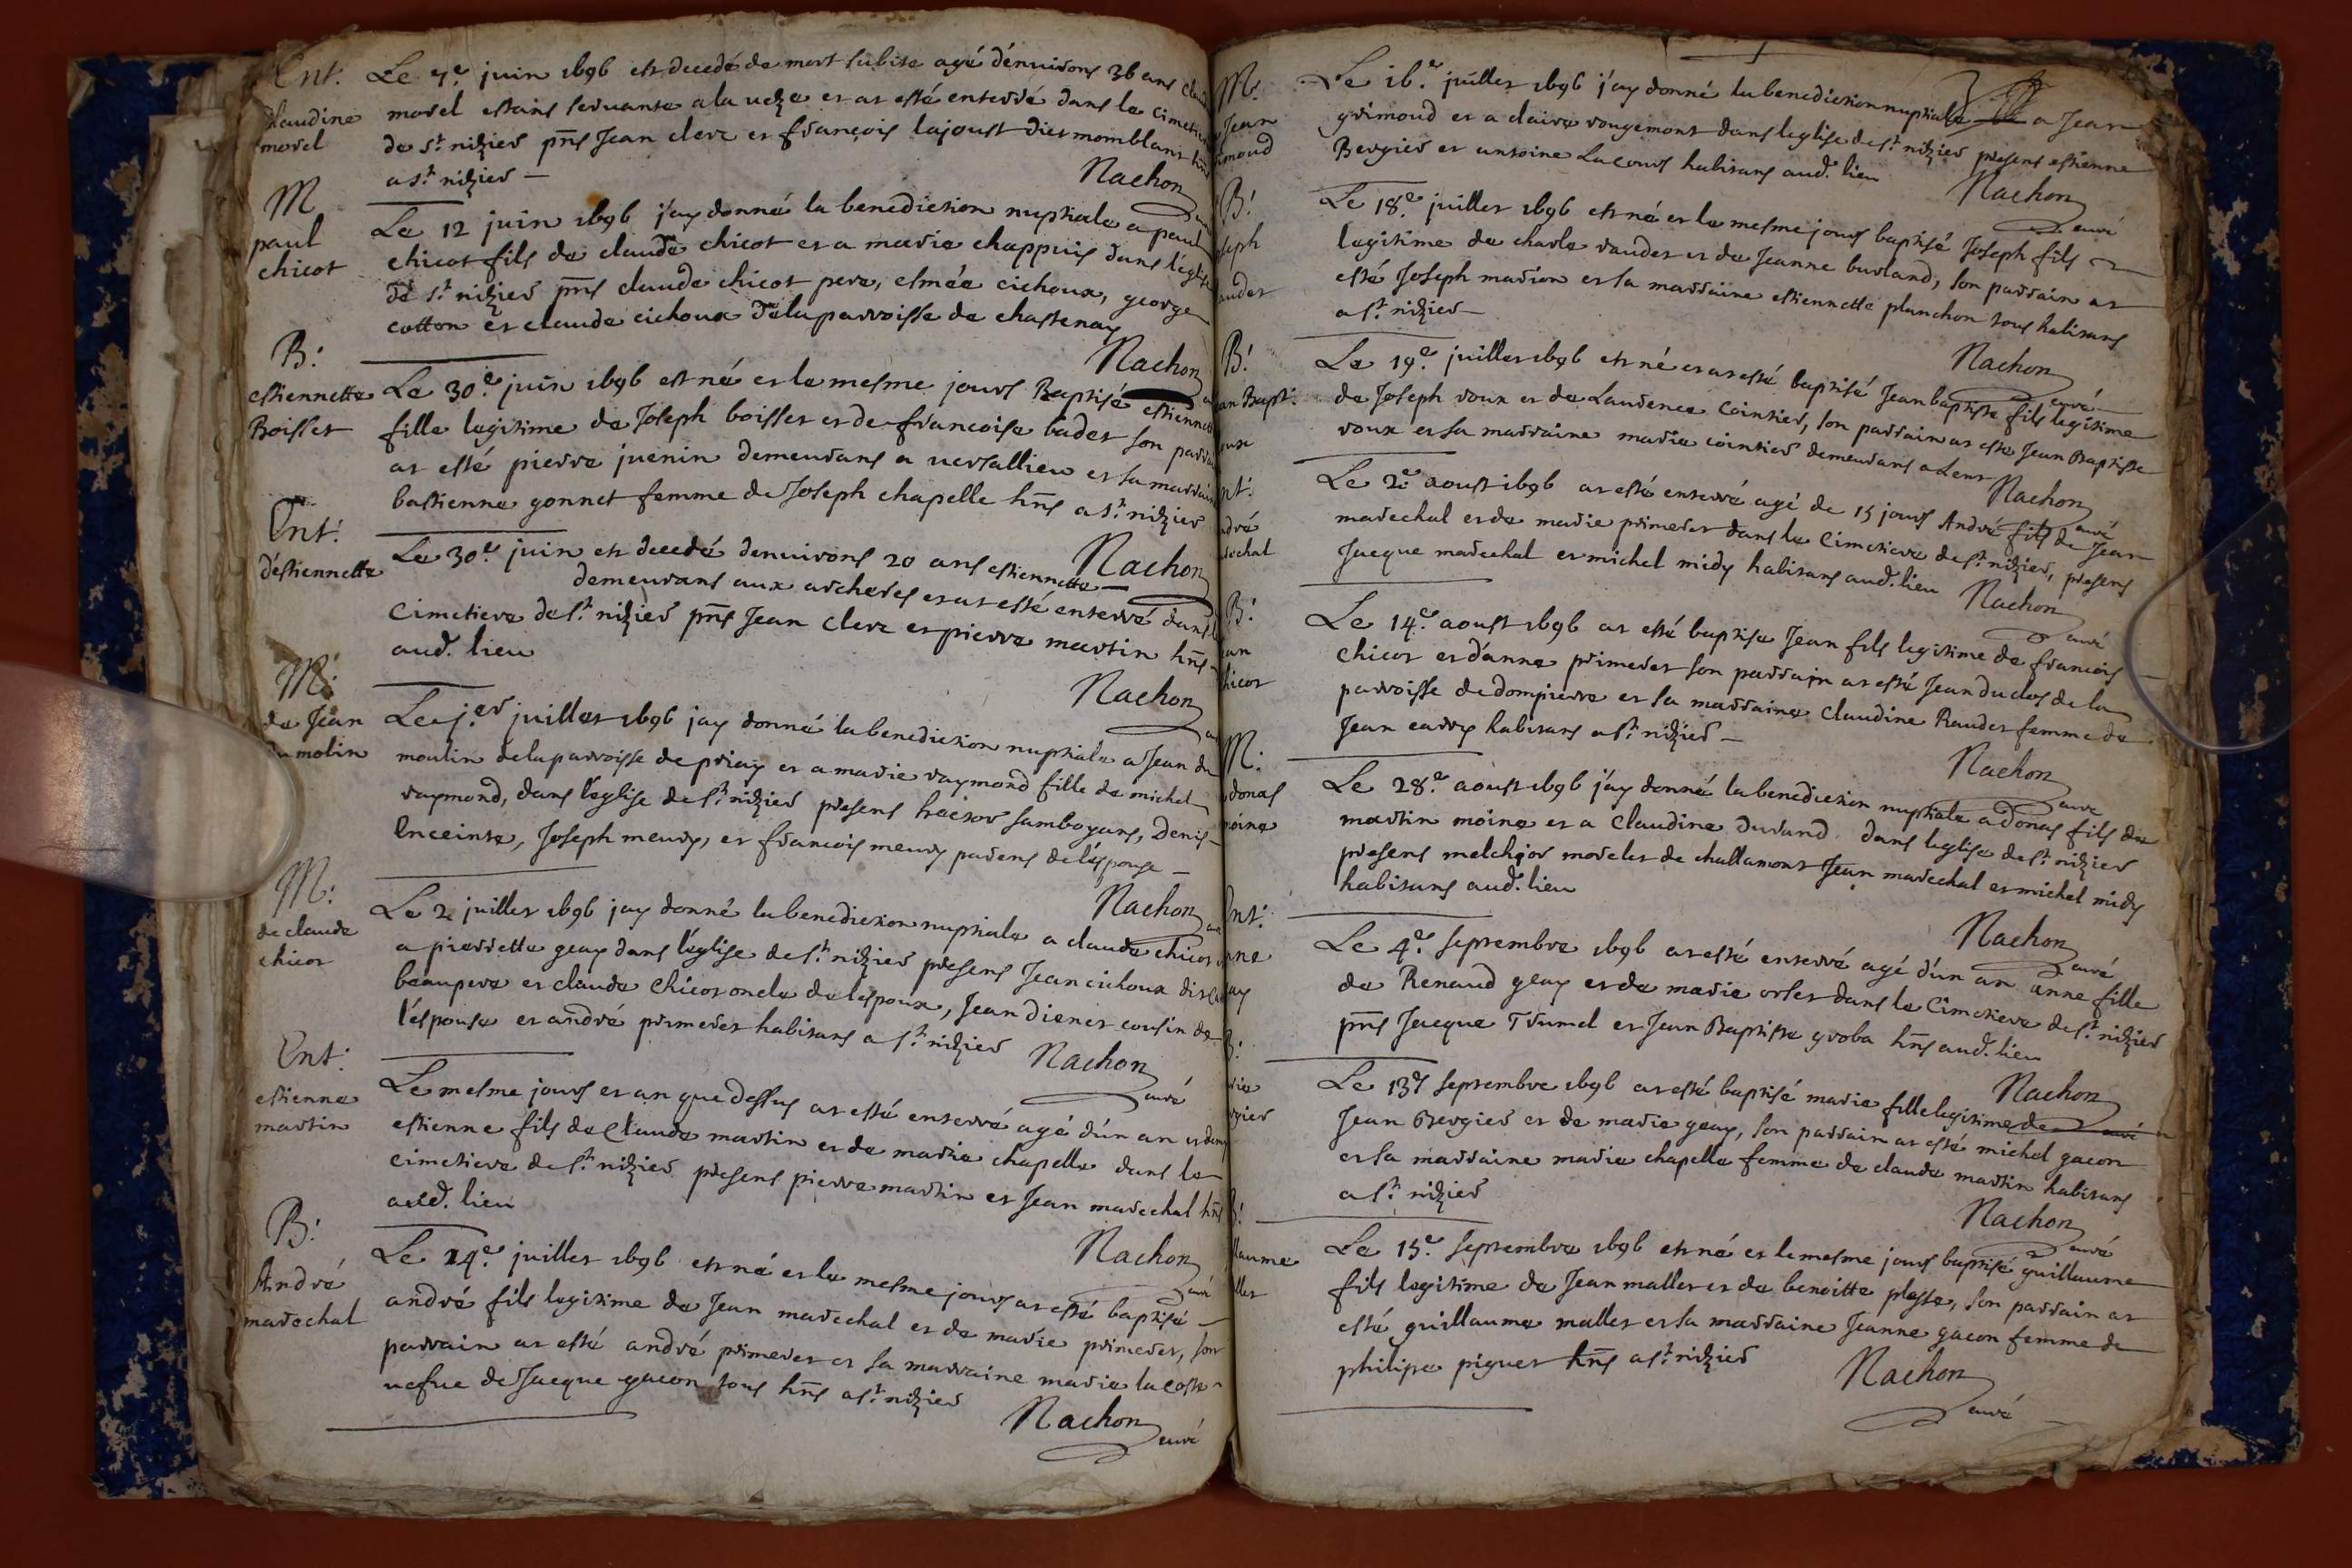 Ent.
Claudine
morel
Le 7e juin 1696 est decedé de mort subite agé d'environs 36 ans
morel estant servante a la et at esté enterré dans le cimetiere
de st. nizier pnts Jean clerc et françois lajoust dict momblant
a st. nizier —
Nachon
M
paul
chicot
Le 12 juin 1696 j'ay donné la benediction nuptiale a paul
chicot fils de claude chicot et a marie chappuis dans l'eglise
de st. nizier pnts claude chicot pere, esmée cichoux, george
cotton et claude cichoux de la parroisse de chastenay
Nachon
B:
estiennette
Boisset
Le 30e juin 1696 est né et le mesme jours Baptisé estiennette
fille legitime de Joseph boisset et de francoise badet son parrain
at esté pierre juenin demeurans a versallieu et sa marraine
bastienne gonnet femme de Joseph chapelle hñs a st. nizier
Nachon
Ent:
d'estiennette
Le 30e juin est decedé denvirons 20 ans estiennette —
demeurans aux archeres et at esté enterré dans le
Cimetiere de st. nizier pñs Jean Clerc et pierre martin hñs
aud. lieu
Nachon
M:
de Jean
du molin
Le jer juillet 1696 jay donné la benediction nuptiale a Jean du
moulin de la parroisse de priay et a marie raymond fille de michel
raymond, dans l'eglise de st. nizier presens hector samboyans, Denis
Enceinte, Joseph meury, et francois meury parens de l'espouse —
Nachon
M:
de claude
chicot
Le 2 juillet 1696 jay donné la benediction nuptiale a claude chicot et
a pierrette geay dans l'eglise de st. nizier presens Jean cichoux
beaupere et claude Chicot oncle de lespoux, Jean dienet cousin de
l'espouse et andré primeret habitans a st. nizier
Nachon
curé
Ent:
estienne
martin
Le mesme jours et an que dessus at esté enterré agé d'un an et demy
estienne fils de Claude martin et de marie chapelle dans le
cimetiere de st. nizier presens pierre martin et Jean marechal hñs
aud. lieu
Nachon
curé
B:
André
marechal
Le 24e juillet 1696 est né et le mesme jours at esté baptisé —
andré fils legitime de Jean marechal et de marie primeret, son
parrain at esté andré primeret et sa marraine marie lacoste
vefve de Jacque gacon tous hñs a st. nizier
Nachon
curé
M:
Jean
Le 16e juillet 1696 j'ay donné la benediction nuptiale a Jean
grimoud et a claire rougemont dans leglise de st. nizier presens estienne
Bergier et antoine Lacours habitans aud. lieu
Nachon
curé
B:
Le 18e juillet 1696 est né et le mesme jours baptisé Joseph fils
legitime de charle raudet et de Jeanne burland, son parrain at
esté Joseph marion et sa marraine estiennette planchon tous habitans
a st. nizier —
Nachon
curé
B:
Le 19e juillet 1696 est né et at esté baptisé Jean baptiste fils legitime
de Joseph roux et de Laurence Cointier, son parrain at esté Jean Baptiste
roux et sa marraine marie cointier demeurans a Lent
Nachon
curé
Le 2e aoust 1696 at esté enterré agé de 15 jours André fils de Jean
marechal et de marie primeret dans le Cimetiere de st. nizier, presens
Jacque marechal et michel midy habitans aud. lieu
Nachon
curé
B:
Le 14e aoust 1696 at esté baptisé Jean fils legitime de francois
Chicot et d'anne primeret son parrain at esté Jean duclos de la
parroisse de dompierre et sa marraine Claudine Raudet femme de
Jean carry habitans a st. nizier —
Nachon
curé
M:
donas
moine
Le 28e aoust 1696 j'ay donné la benediction nuptiale a donas fils de
martin moine et a Claudine durand dans leglise de st. nizier
presens melchior morelet de challamont Jean marechal et michel midy
habitans aud. lieu
Nachon
curé
Ent:
Le 4e septembre 1696 at esté enterré agé d'un an anne fille
de Renaud geay et de marie orset dans le Cimetiere de st. nizier
pñs Jacque Trumel et Jean Baptiste groba hñs aud. lieu
Nachon
curé
Le 13e septembre 1696 at esté baptisé marie fille legitime de
Jean Bergier et de marie geay, son parrain at esté michel gacon
et sa marraine marie chapelle femme de claude martin habitans
a st. nizier
Nachon
curé
B:
Le 15e septembre 1696 est né et le mesme jours baptisé guillaume
fils legitime de Jean mallet et de benoitte plaste, son parrain at
esté guillaume mallet et sa marraine Jeanne gacon femme de
philipe piguet hñs a st. nizier
Nachon
curé